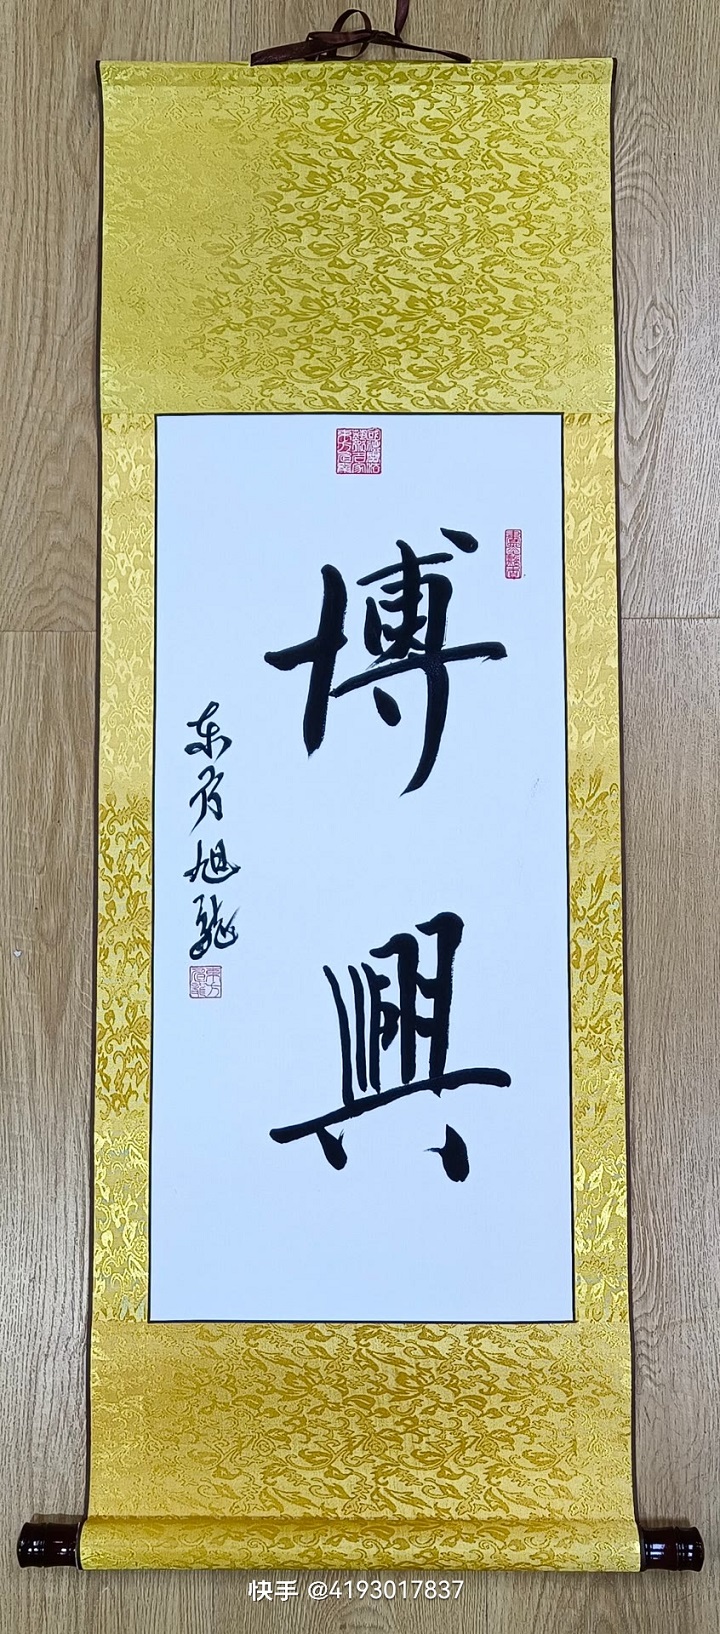 博興
东方旭龍
快手 @4193017837